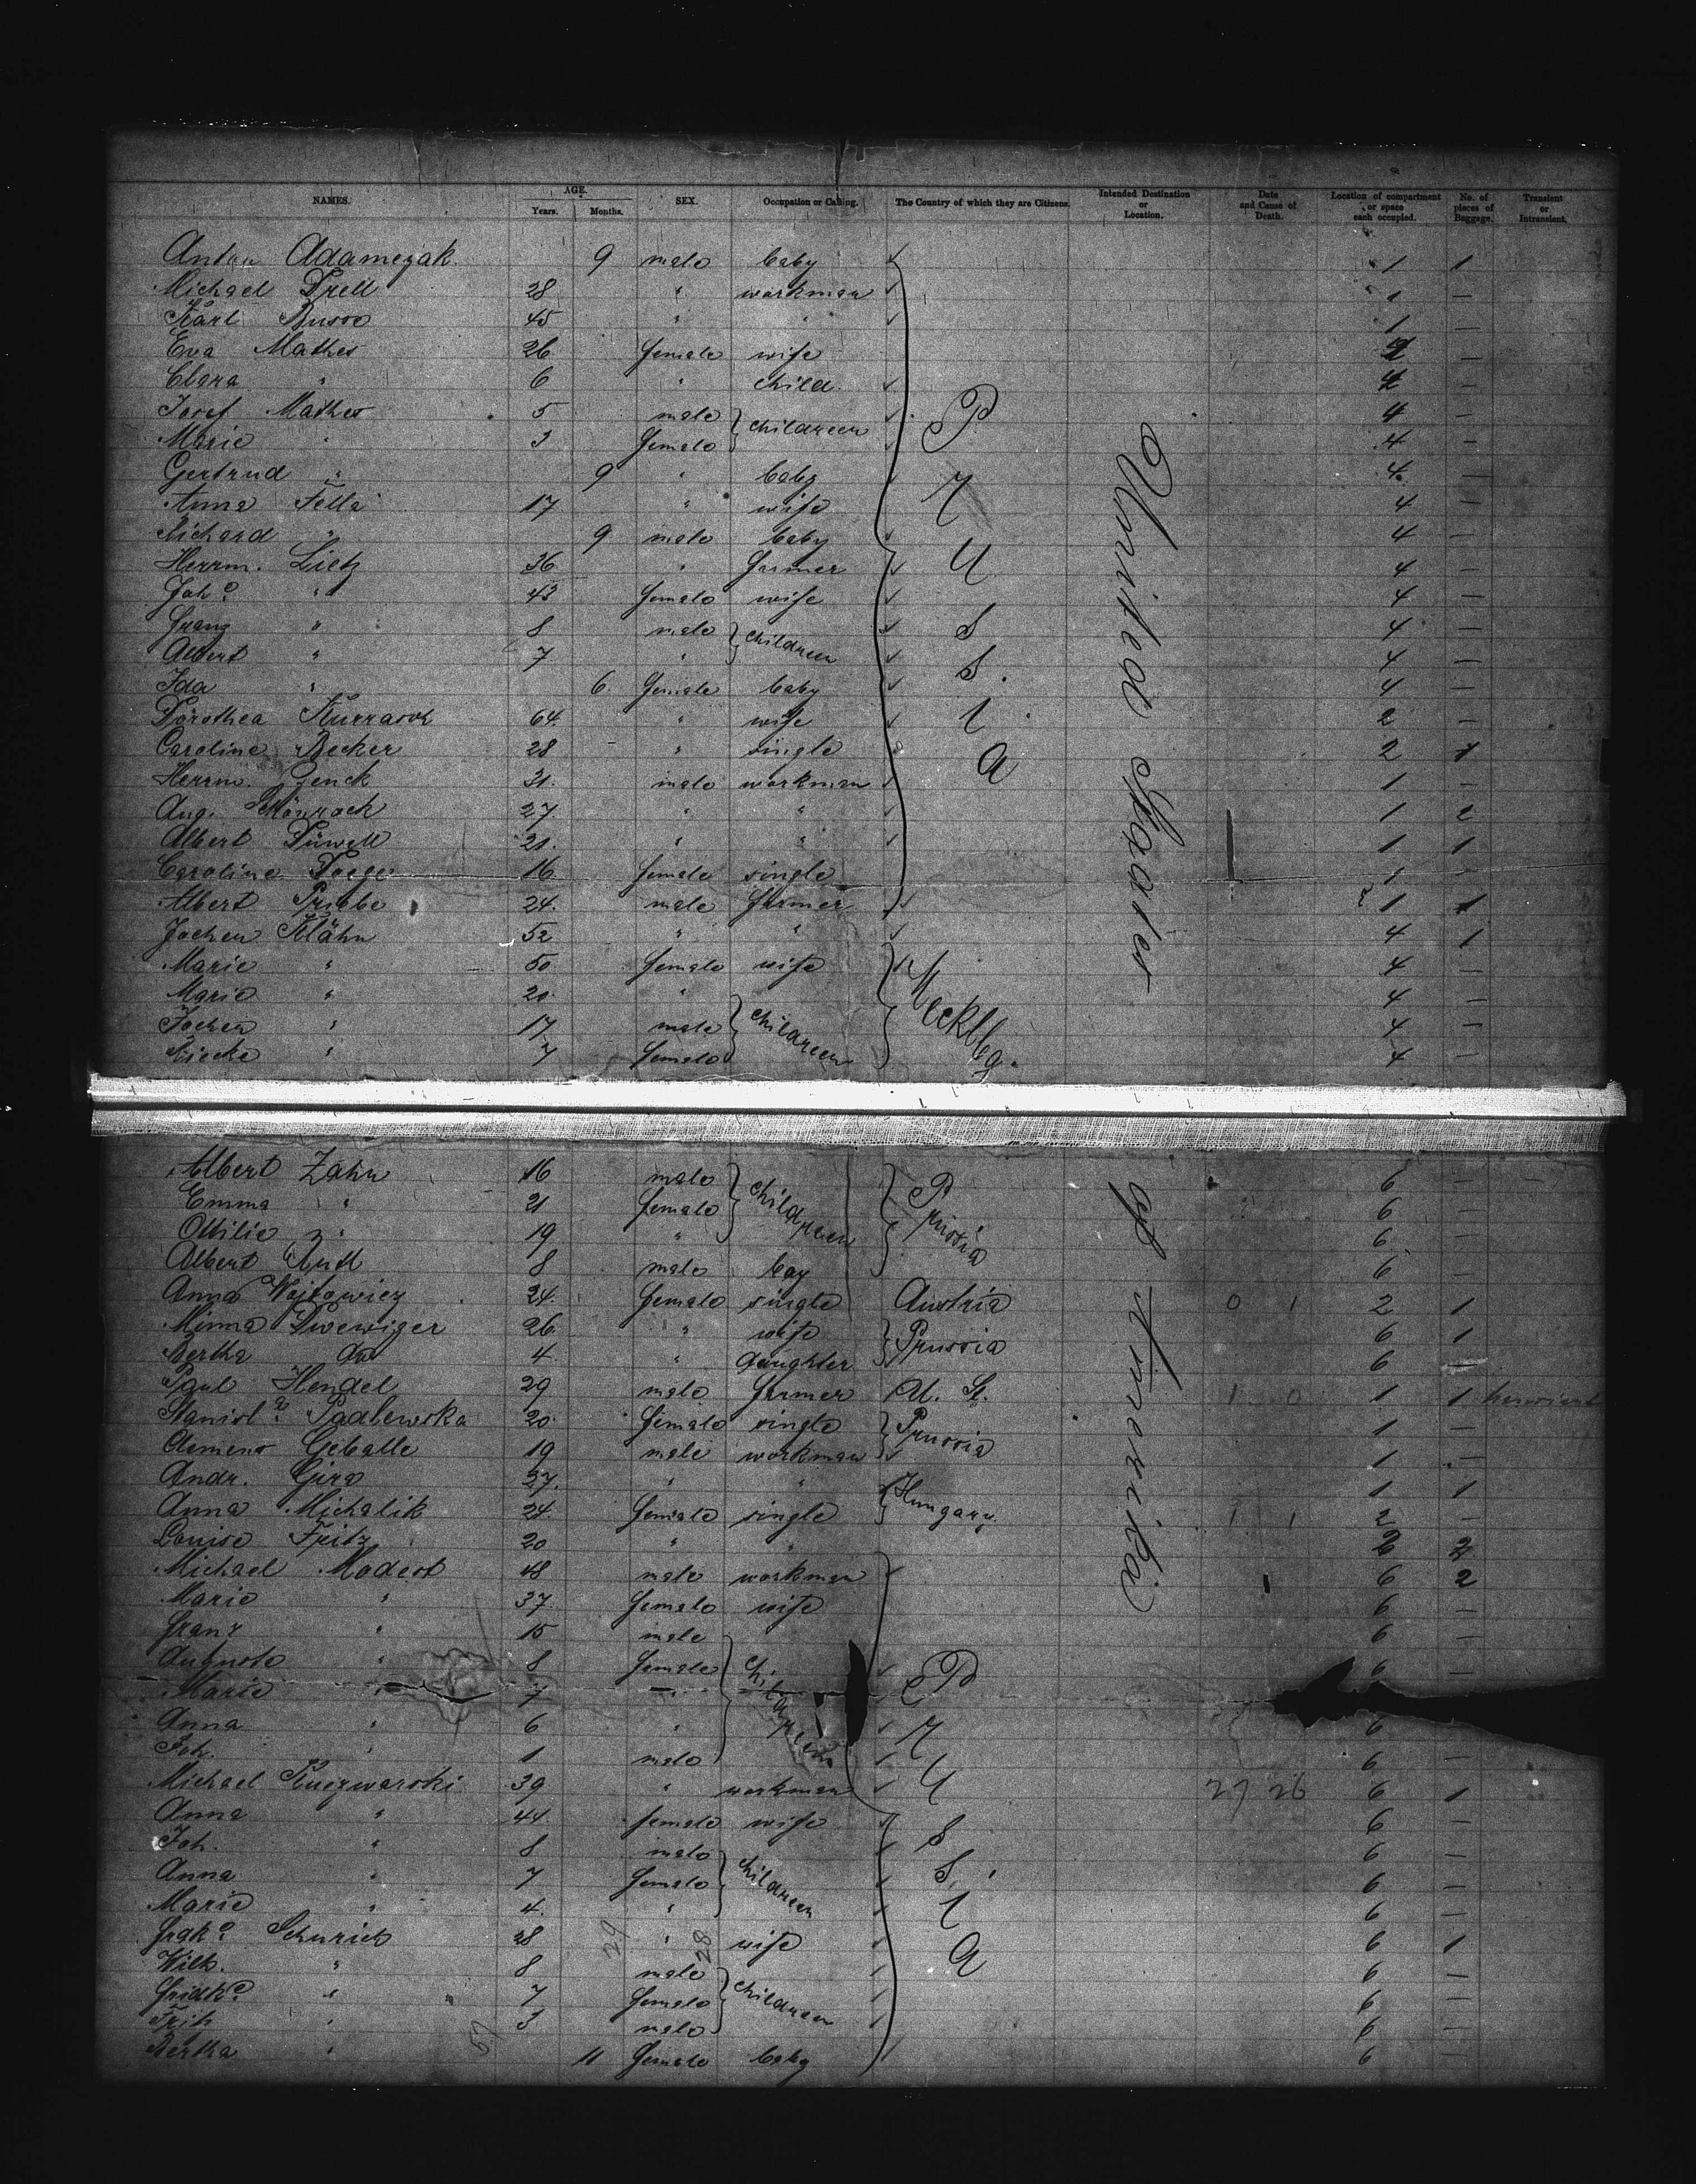 NAMES. AGE. SEX. Occupation or Calling. The Country of which they are Citizens. Intended Destination or Location. Date and Cause of Death. Location of compartment or space each occupied. No. of pieces of Baggage. Transient or Intransient.
Years. Months.
Anton Adamczak 9 male baby 1 1
Michael Drell 28 " workman 1 —
Karl Busse 45 " " 1 —
Eva Mathes 26 female wife —
Clara " 6 " child 4 —
Josef Mathes 5 male children 4 —
Marie " 3 female 4 —
Gertrud " 9 " baby 4 —
Anna Fella 17 " wife 4 —
Richard " 9 male baby 4 —
Herrm. Lietz 36 " farmer 4 —
Joh? " 43 female wife 4 —
Franz " 8 male children 4 —
Albert " 7 " 4 —
Ida " 6 female baby 4 —
Dorothea 64 " wife 2 —
Caroline Becker 28 " single 2 1
Herrm. Zenck 31 male workman 1 —
Aug. 27 " " 1 2
Albert Düwell 21 " " 1 1
Caroline 16 female single 1 —
Albert Priebe 24 male farmer 1 1
Jochen Klähn 52 " " 4 1
Marie " 50 female wife 4 —
Marie " 20 " children 4 —
Jochen " 17 male 4 —
" 7 female 4 —
Prussia
Mecklbg.
United States
Albert Zahn 16 male children Prussia 6 —
Emma " 21 female 6 —
Ottilie " 19 " 6 —
Albert 8 male boy 6 —
Anna Wojtowicz 24 female single Austria 0 1 2 1
Minna Dwewiger 26 " wife Prussia 6 1
Bertha do 4 " daughter 6 —
Paul Hendel 29 male farmer U. St. 1 0 1 1
Stanisl? Padlewska 20 female single Prussia 1 —
Clemens Geballe 19 male workman 1 —
Andr. Gira 27 " " Hungary 1 1
Anna Michalik 24 female single 1 1 2 —
Louise Fritz 20 " " 2 2
Michael Modest 48 male workman 6 2
Marie " 37 female wife 6 —
Franz " 15 male children 6 —
Auguste " 8 female 6 —
Marie " 7 "
Anna " 6 " 6
Joh. " 1 male 6 —
Michael Kuczwarski 39 " workman 27 26 6 1
Anna " 44 female wife 6 —
Joh. " 8 male children 6 —
Anna " 7 female 6 —
Marie " 4 " 6 —
Schurick 28 " wife 6 1
Wilh. " 8 male children 6 —
Fridk? " 7 female 6 —
Fritz " 3 male 6 —
Bertha " 11 female baby 6 —
Prussia
of Amerika
29 28
57